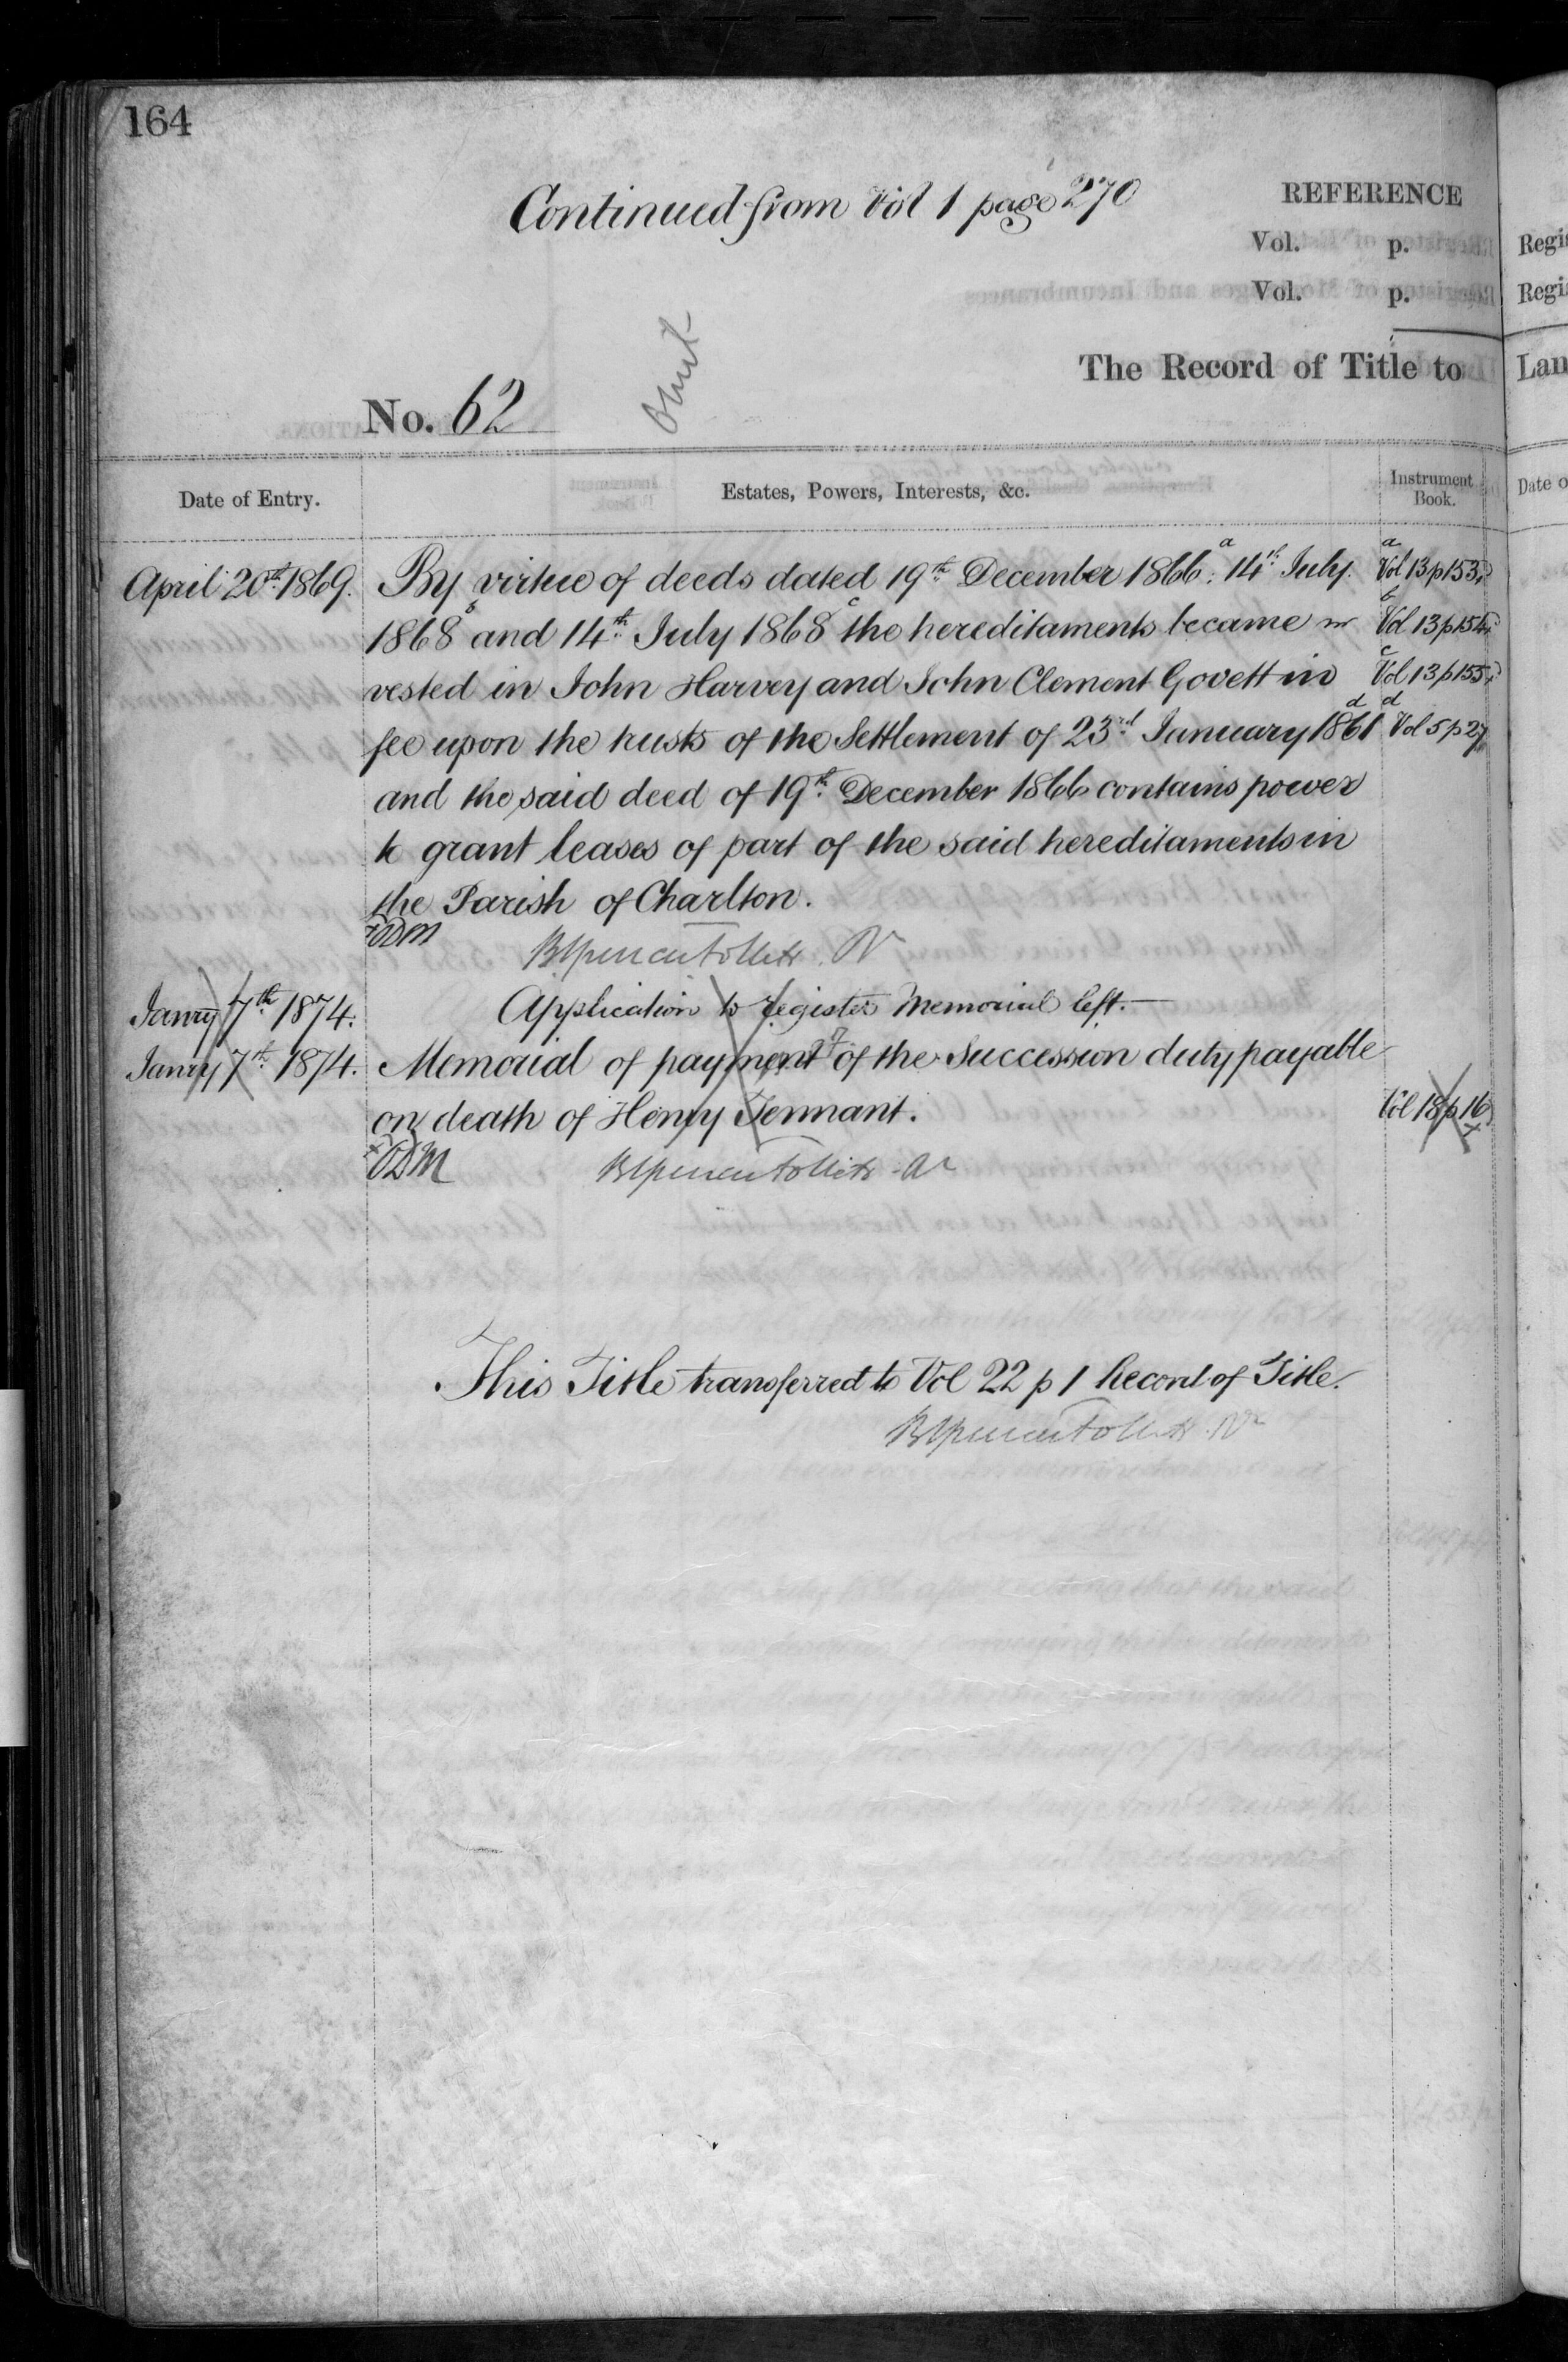 164
Continued from Vol 1 page 270
REFERENCE
Vol. p.
Vol. p.
The Record of Title to
No. 62
Date of Entry.
Estates, Powers, Interests, &c.
Instrument Book.
April 20th 1869. By virtue of deeds dated 19th December 1866 a: 14th July a Vol 13 p 153
1868 b and 14th July 1868 c the hereditaments became b Vol 13 p 154
vested in John Harvey and John Clement Govett in c Vol 13 p 155
fee upon the trusts of the Settlement of 23rd January 1861 d d Vol 5 p 27
and the said deed of 19th December 1866 contains power
to grant leases of part of the said hereditaments in
the Parish of Charlton.
Janry 7th 1874. Application to register Memorial left.
Janry 7th 1874. Memorial of payment of the Succession duty payable
on death of Henry Tennant. Vol 18 p 16
This Title transferred to Vol 22 p 1 Record of Title.
Regi
Regi
Lan
Date o